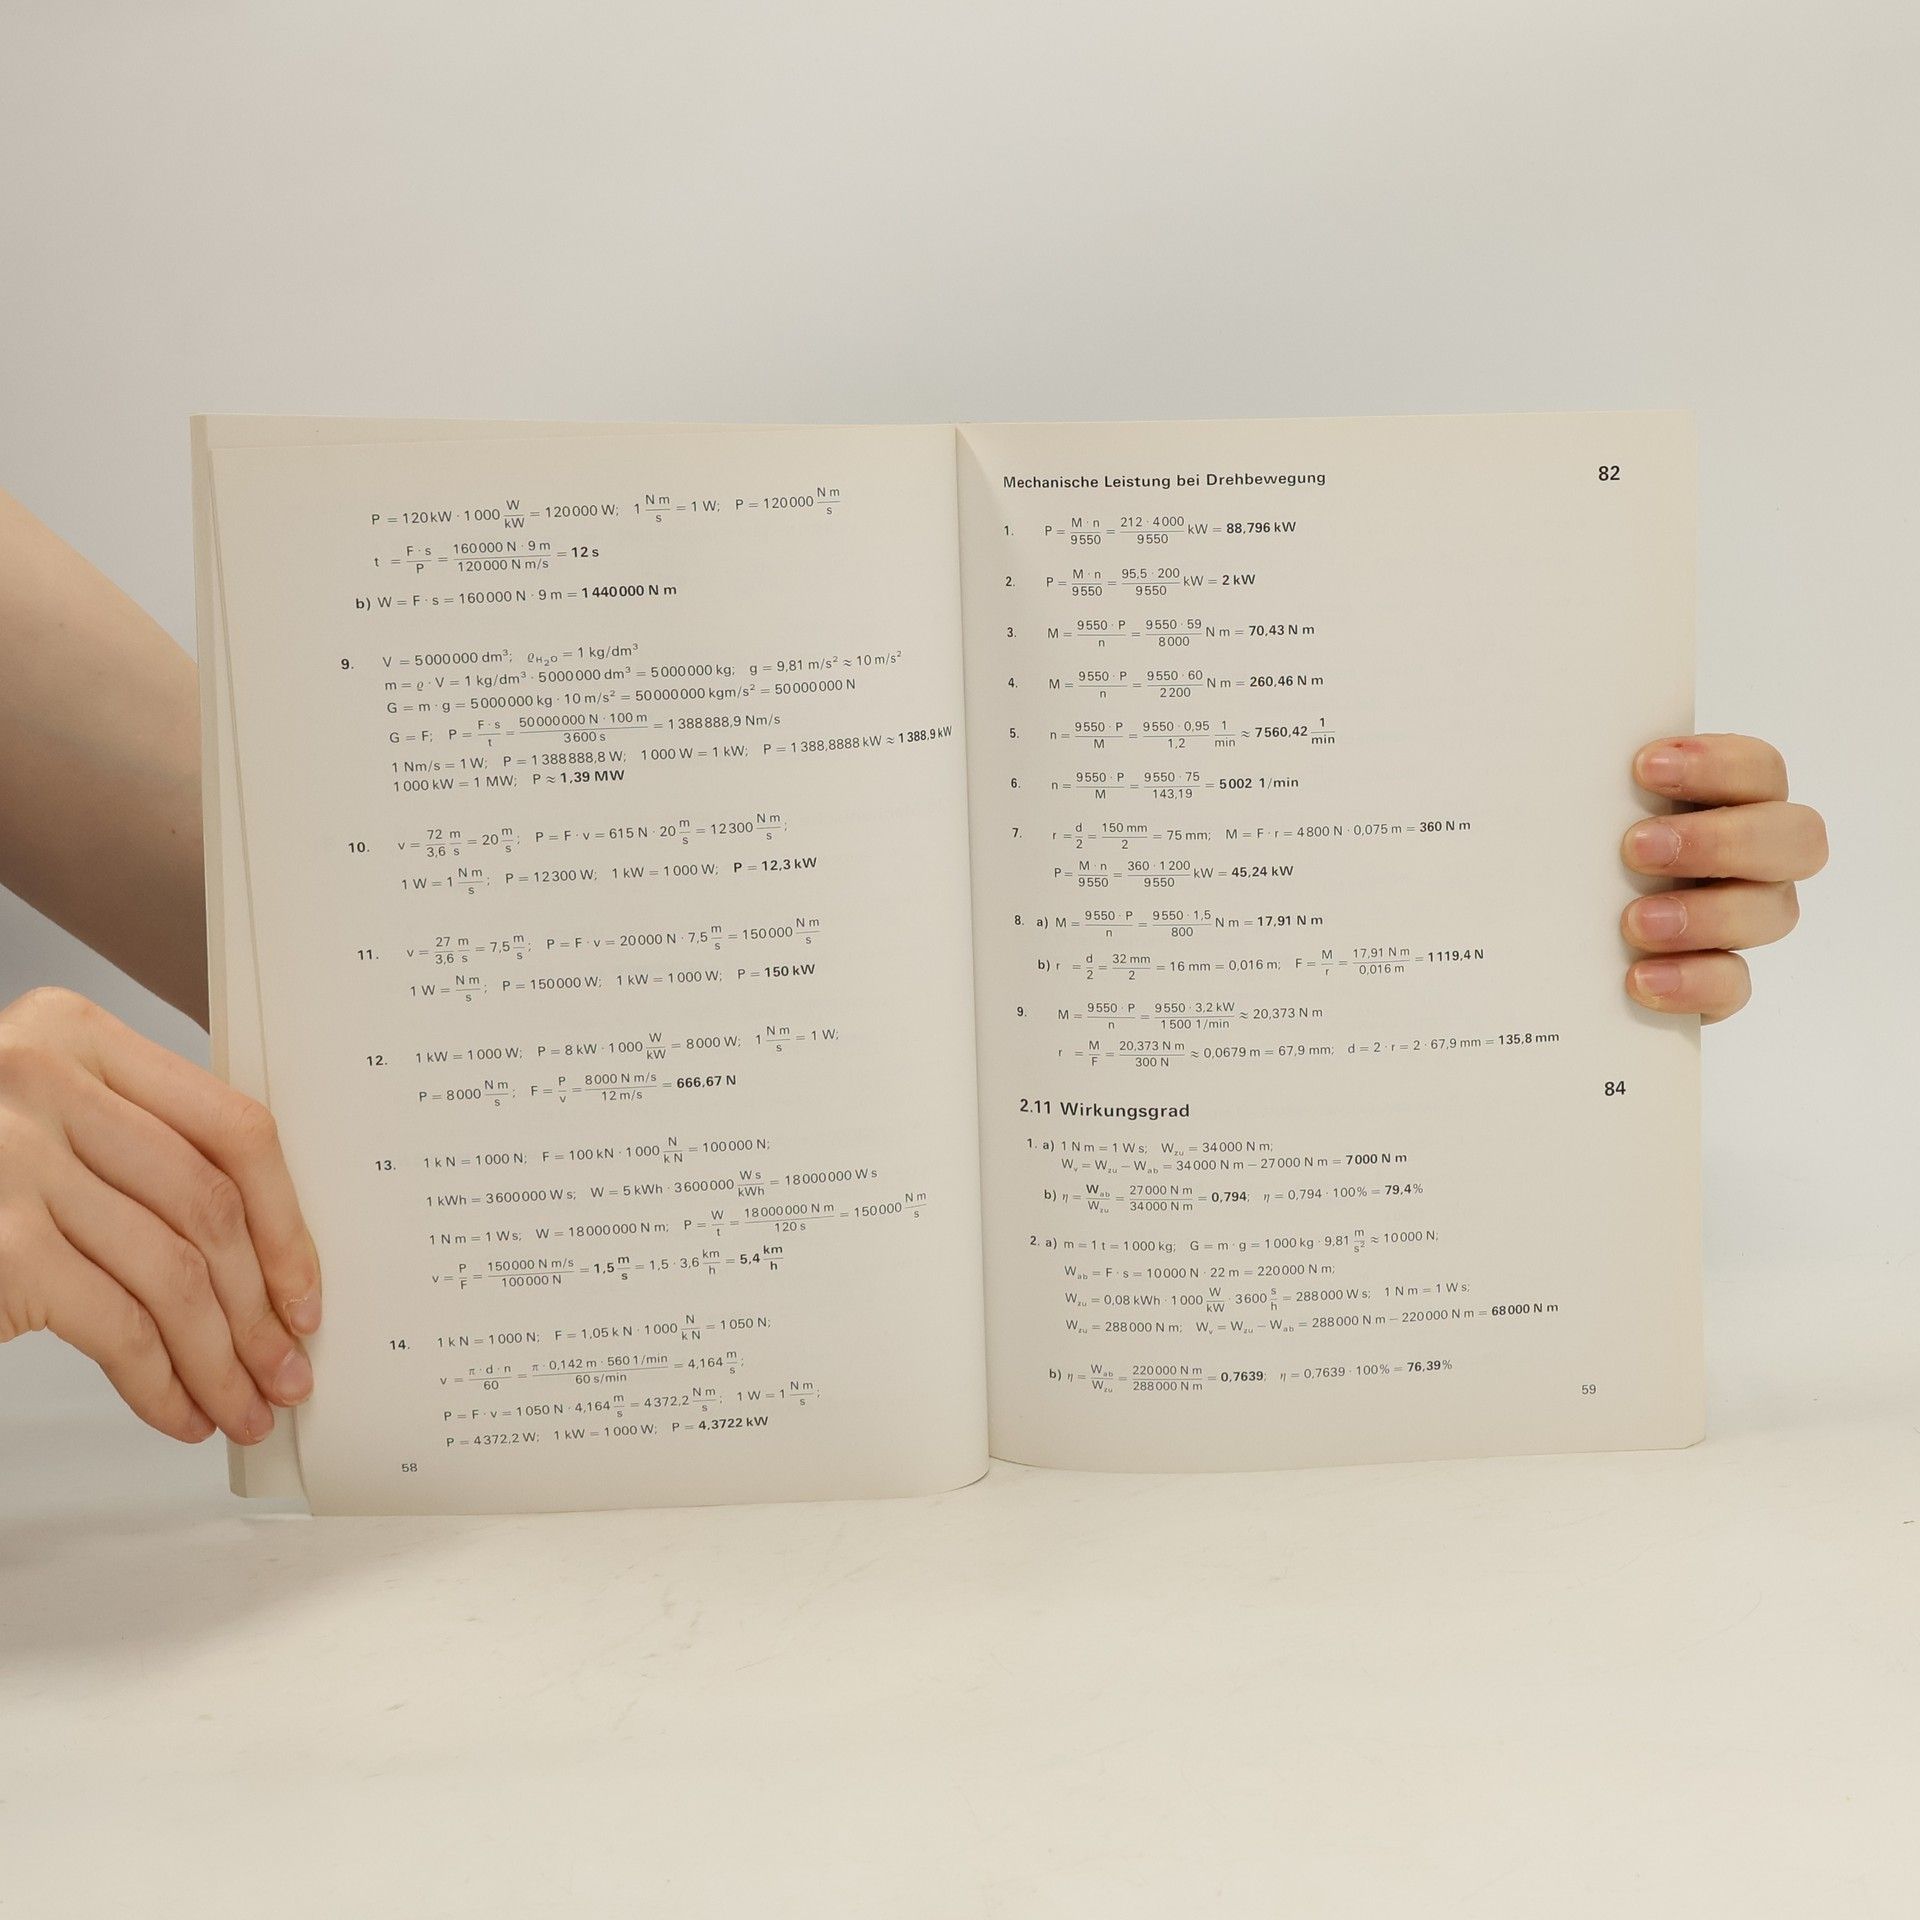 P = 120 kW · 1 000 W/kW = 120 000 W; 1 N m/s = 1 W; P = 120 000 N m/s
t = F · s/P = 160 000 N · 9 m/120 000 N m/s = 12 s
b) W = F · s = 160 000 N · 9 m = 1 440 000 N m
9. V = 5 000 000 dm³; ϱH₂O = 1 kg/dm³
m = ϱ · V = 1 kg/dm³ · 5 000 000 dm³ = 5 000 000 kg; g = 9,81 m/s² ≈ 10 m/s²
G = m · g = 5 000 000 kg · 10 m/s² = 50 000 000 kgm/s² = 50 000 000 N
G = F; P = F · s/t = 50 000 000 N · 100 m/3 600 s = 1 388 888,9 Nm/s
1 Nm/s = 1 W; P = 1 388 888,8 W; 1 000 W = 1 kW; P = 1 388,8888 kW ≈ 1 388,9 kW
1 000 kW = 1 MW; P ≈ 1,39 MW
10. v = 72/3,6 m/s = 20 m/s; P = F · v = 615 N · 20 m/s = 12 300 N m/s;
1 W = 1 N m/s; P = 12 300 W; 1 kW = 1 000 W; P = 12,3 kW
11. v = 27/3,6 m/s = 7,5 m/s; P = F · v = 20 000 N · 7,5 m/s = 150 000 N m/s
1 W = N m/s; P = 150 000 W; 1 kW = 1 000 W; P = 150 kW
12. 1 kW = 1 000 W; P = 8 kW · 1 000 W/kW = 8 000 W; 1 N m/s = 1 W;
P = 8 000 N m/s; F = P/v = 8 000 N m/s/12 m/s = 666,67 N
13. 1 k N = 1 000 N; F = 100 kN · 1 000 N/k N = 100 000 N;
1 kWh = 3 600 000 W s; W = 5 kWh · 3 600 000 W s/kWh = 18 000 000 W s
1 N m = 1 Ws; W = 18 000 000 N m; P = W/t = 18 000 000 N m/120 s = 150 000 N m/s
v = P/F = 150 000 N m/s/100 000 N = 1,5 m/s = 1,5 · 3,6 km/h = 5,4 km/h
14. 1 k N = 1 000 N; F = 1,05 k N · 1 000 N/k N = 1 050 N;
v = π · d · n/60 = π · 0,142 m · 560 1/min/60 s/min = 4,164 m/s;
P = F · v = 1 050 N · 4,164 m/s = 4 372,2 N m/s; 1 W = 1 N m/s;
P = 4 372,2 W; 1 kW = 1 000 W; P = 4,3722 kW
58
Mechanische Leistung bei Drehbewegung 82
1. P = M · n/9 550 = 212 · 4 000/9 550 kW = 88,796 kW
2. P = M · n/9 550 = 95,5 · 200/9 550 kW = 2 kW
3. M = 9 550 · P/n = 9 550 · 59/8 000 N m = 70,43 N m
4. M = 9 550 · P/n = 9 550 · 60/2 200 N m = 260,46 N m
5. n = 9 550 · P/M = 9 550 · 0,95/1,2 1/min ≈ 7 560,42 1/min
6. n = 9 550 · P/M = 9 550 · 75/143,19 = 5 002 1/min
7. r = d/2 = 150 mm/2 = 75 mm; M = F · r = 4 800 N · 0,075 m = 360 N m
P = M · n/9 550 = 360 · 1 200/9 550 kW = 45,24 kW
8. a) M = 9 550 · P/n = 9 550 · 1,5/800 N m = 17,91 N m
b) r = d/2 = 32 mm/2 = 16 mm = 0,016 m; F = M/r = 17,91 N m/0,016 m = 1 119,4 N
9. M = 9 550 · P/n = 9 550 · 3,2 kW/1 500 1/min ≈ 20,373 N m
r = M/F = 20,373 N m/300 N ≈ 0,0679 m = 67,9 mm; d = 2 · r = 2 · 67,9 mm = 135,8 mm
84
2.11 Wirkungsgrad
1. a) 1 N m = 1 W s; Wzu = 34 000 N m;
Wv = Wzu − Wab = 34 000 N m − 27 000 N m = 7 000 N m
b) η = Wab/Wzu = 27 000 N m/34 000 N m = 0,794; η = 0,794 · 100% = 79,4%
2. a) m = 1 t = 1 000 kg; G = m · g = 1 000 kg · 9,81 m/s² ≈ 10 000 N;
Wab = F · s = 10 000 N · 22 m = 220 000 N m;
Wzu = 0,08 kWh · 1 000 W/kW · 3 600 s/h = 288 000 W s; 1 N m = 1 W s;
Wzu = 288 000 N m; Wv = Wzu − Wab = 288 000 N m − 220 000 N m = 68 000 N m
b) η = Wab/Wzu = 220 000 N m/288 000 N m = 0,7639; η = 0,7639 · 100% = 76,39%
59